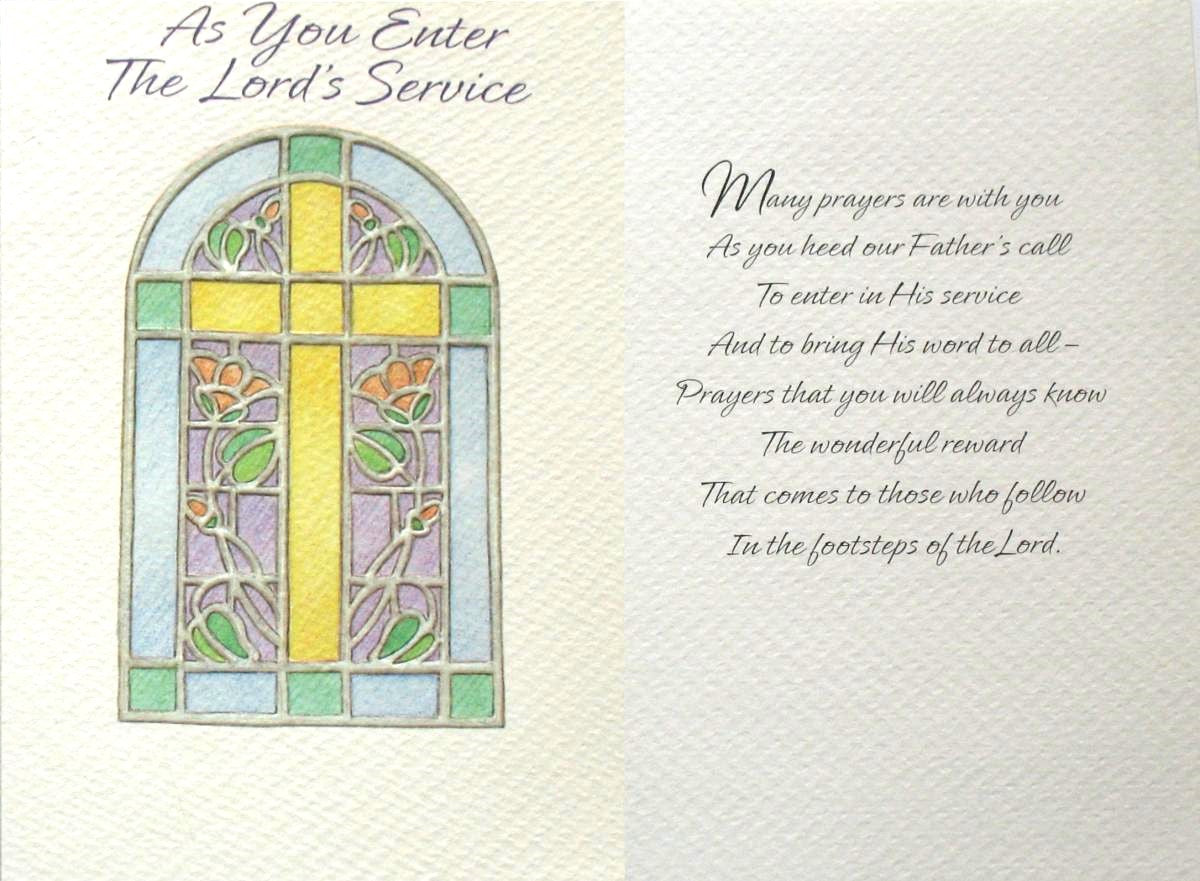 As You Enter
The Lord's Service
Many prayers are with you
As you heed our Father's call
To enter in His service
And to bring His word to all –
Prayers that you will always know
The wonderful reward
That comes to those who follow
In the footsteps of the Lord.